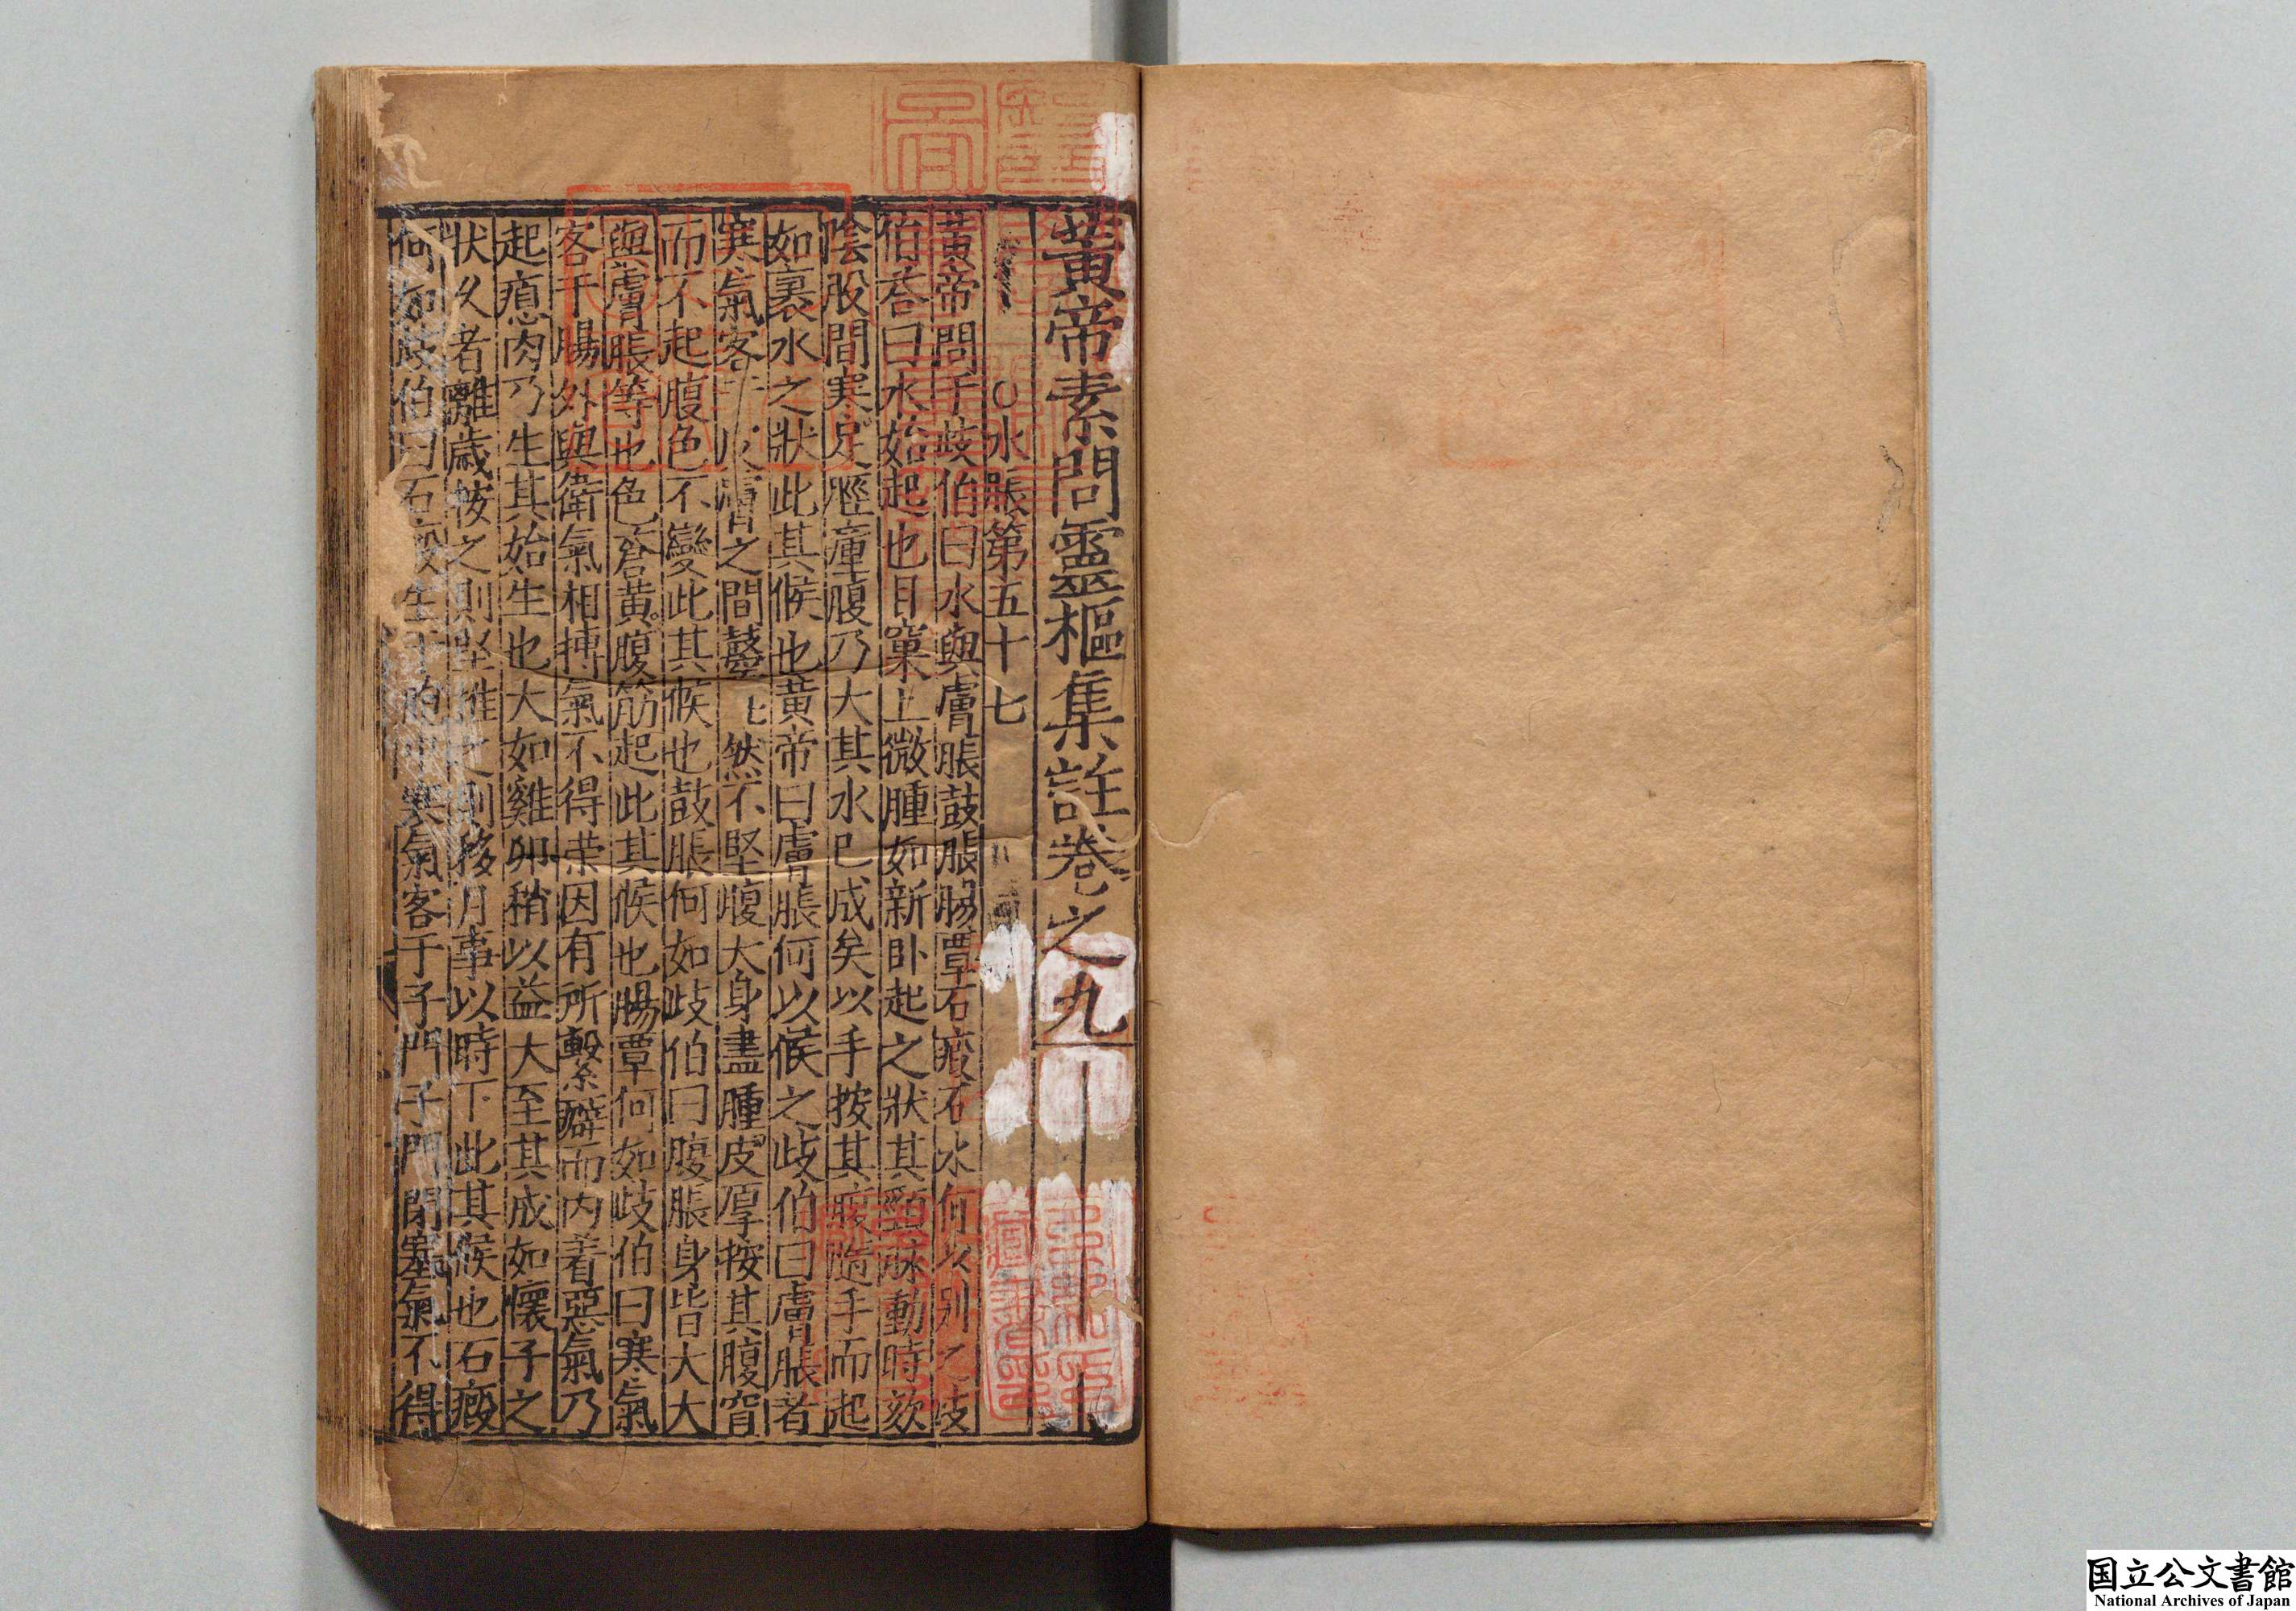 黃帝素問靈樞集註卷之九
○水脹第五十七
黃帝問于歧伯曰水與膚脹鼓脹腸覃石瘕石水何以別之歧
伯荅曰水始起也目窠上微腫如新卧起之狀其頸脉動時欬
陰股間寒足脛瘇腹乃大其水已成矣以手按其腹隨手而起
如裹水之狀此其候也黃帝曰膚脹何以候之歧伯曰膚脹者
寒氣客于皮膚之間鼞〻然不堅腹大身盡腫皮厚按其腹窅
而不起腹色不變此其候也鼓脹何如歧伯曰腹脹身皆大大
與膚脹等也色蒼黃腹筋起此其候也腸覃何如歧伯曰寒氣
客于腸外與衛氣相搏氣不得荣因有所繫癖而内着惡氣乃
起瘜肉乃生其始生也大如雞卵稍以益大至其成如懷子之
狀久者離歲按之則堅推之則移月事以時下此其候也石瘕
何如歧伯曰石瘕生于胞中寒氣客于子門子門閉塞氣不得
国立公文書館
National Archives of Japan